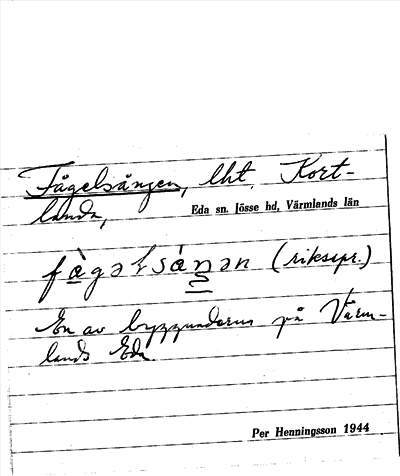 Fågelsången, lht. Kort-
landa, Eda sn. Jösse hd, Värmlands län
(riksspr.)
En av byggnaderna på Värm-
lands Eda
Per Henningsson 1944